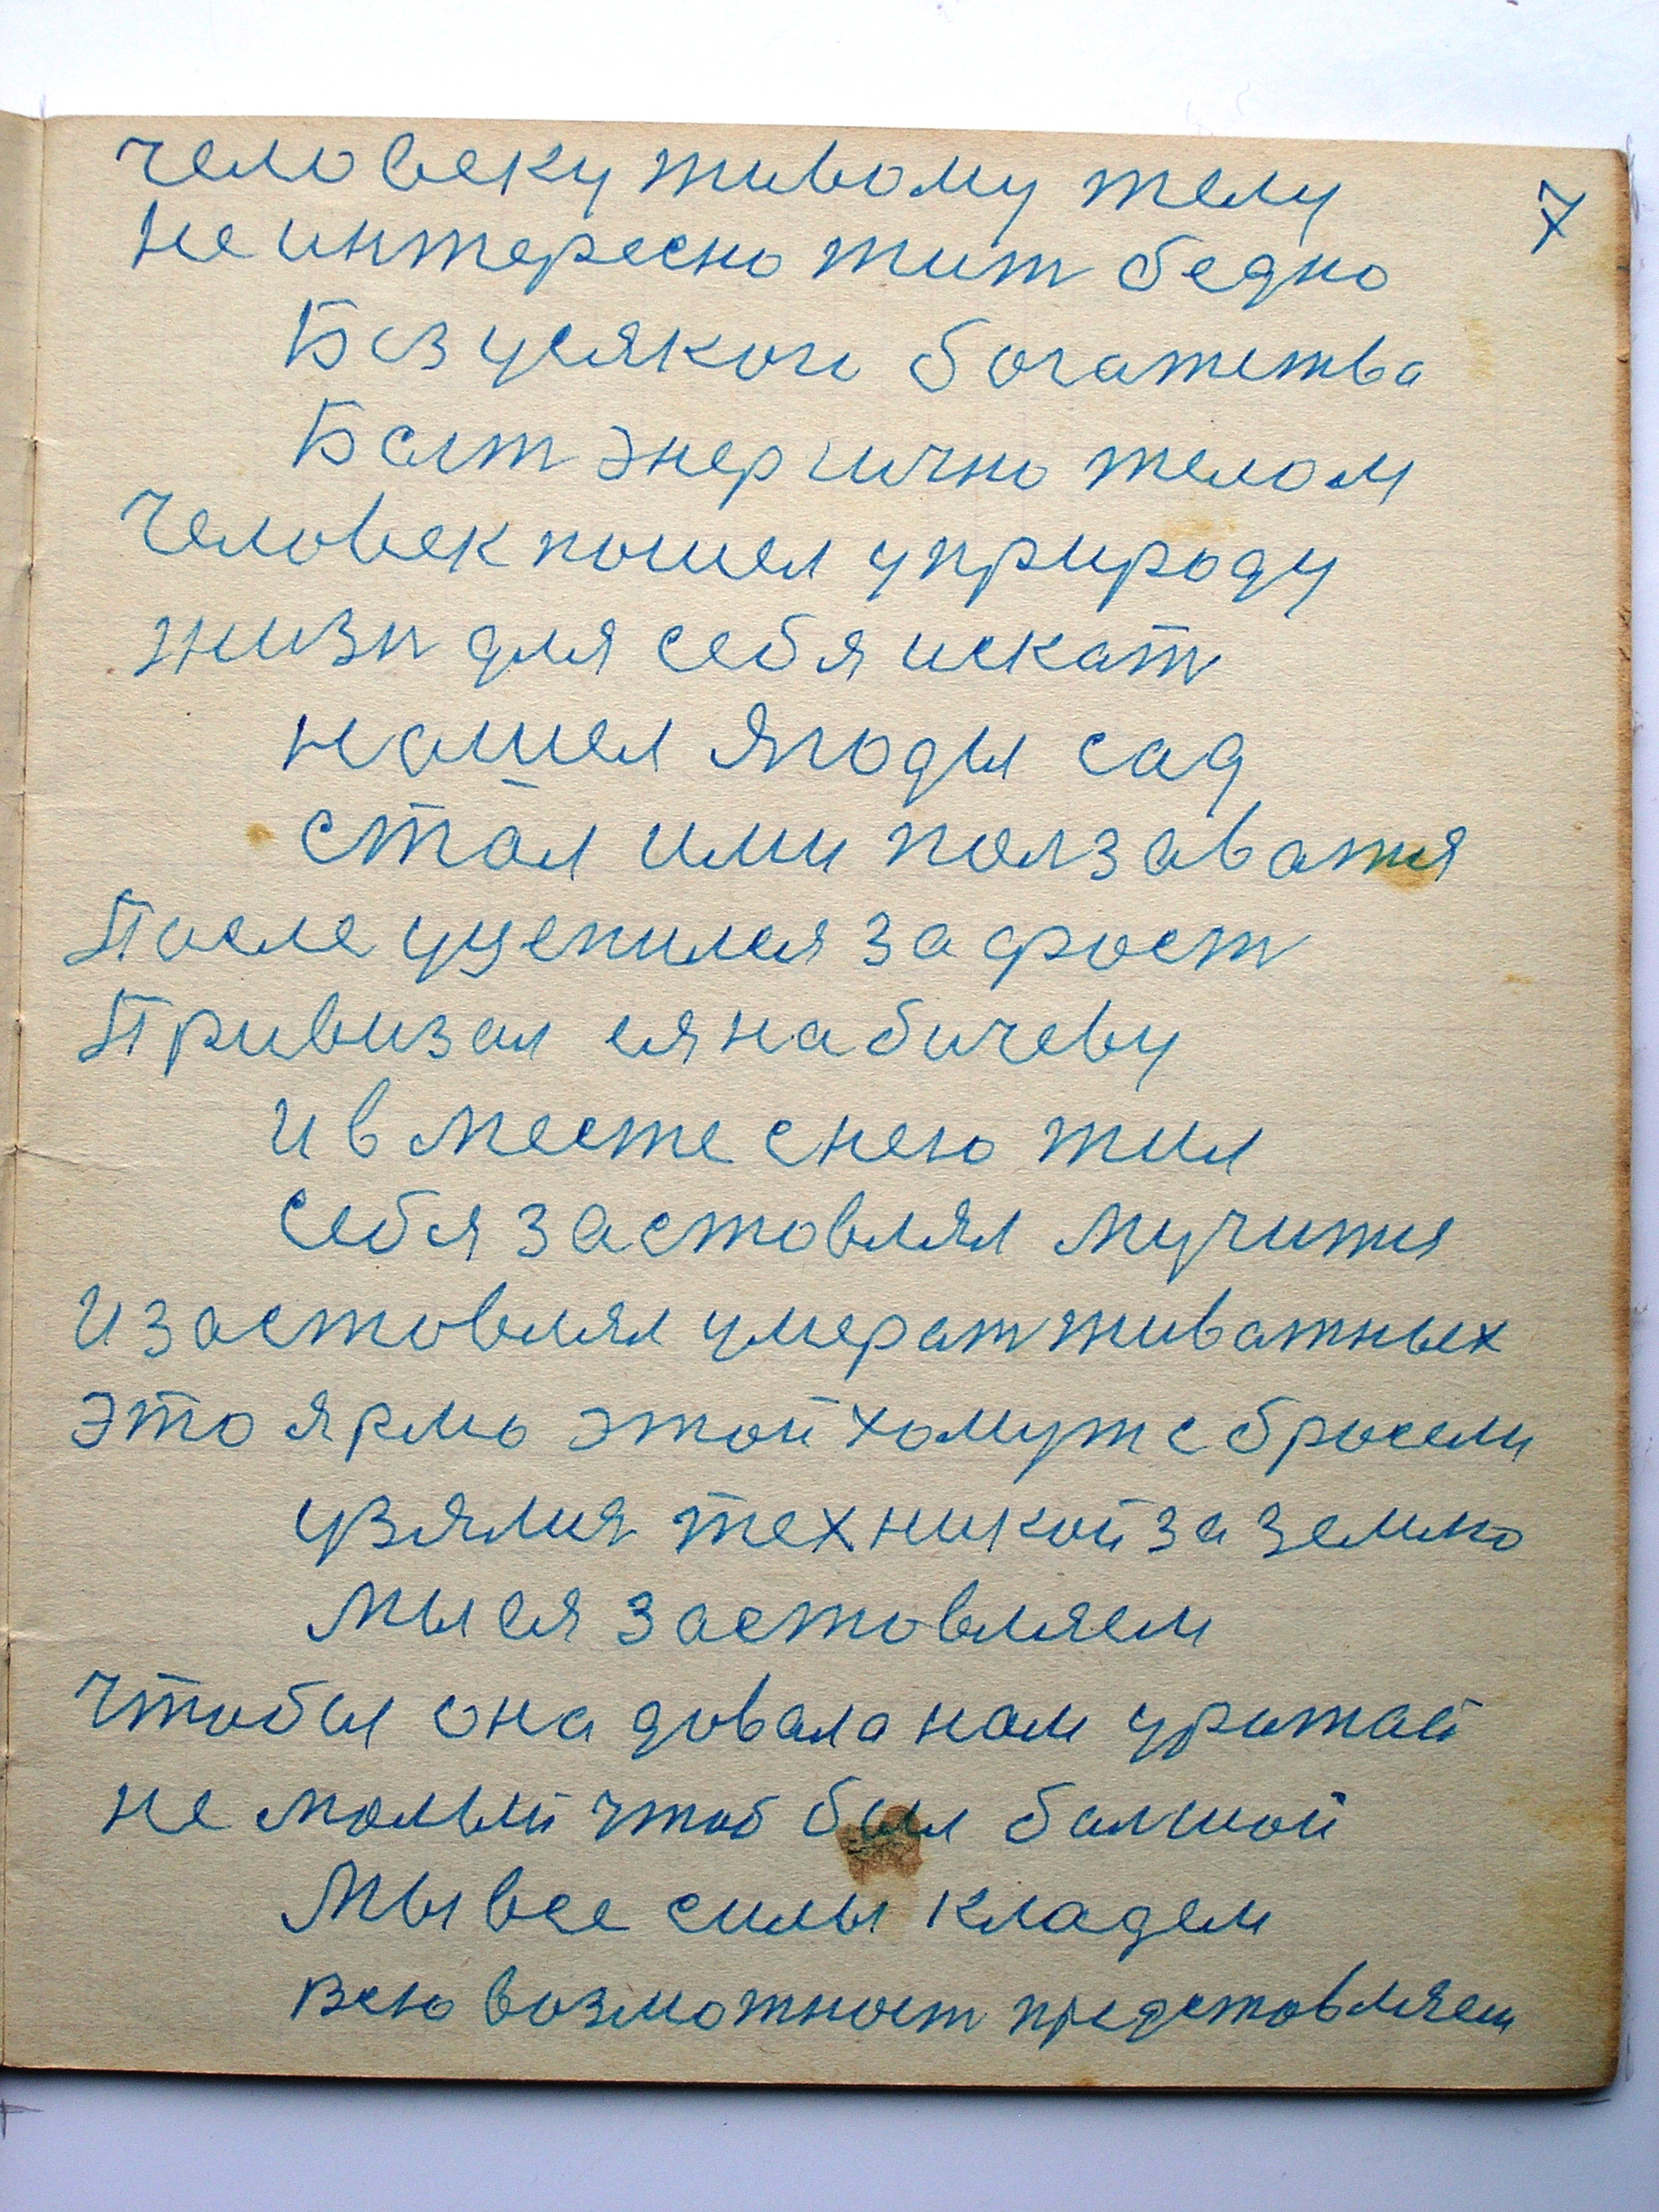 человеку живому телу
7
не интересно жит бедно
Без усякого богатства
Быт энергично телом
Человек пошел у природу
жизн для себя искат
нашел ягоды сад
стал ими ползаватя
После уцепился за хвост
Привизал ея на бичеву
и в месте с нею жил
себя застовлял мучится
и застовлял умерат живатных
это ярмо этой хомут сбросели
узялися техникой за землю
мы ея застовляем
чтобы она довала нам урожай
не малый чтоб был балшой
Мы все силы кладем
всю возможност представляем